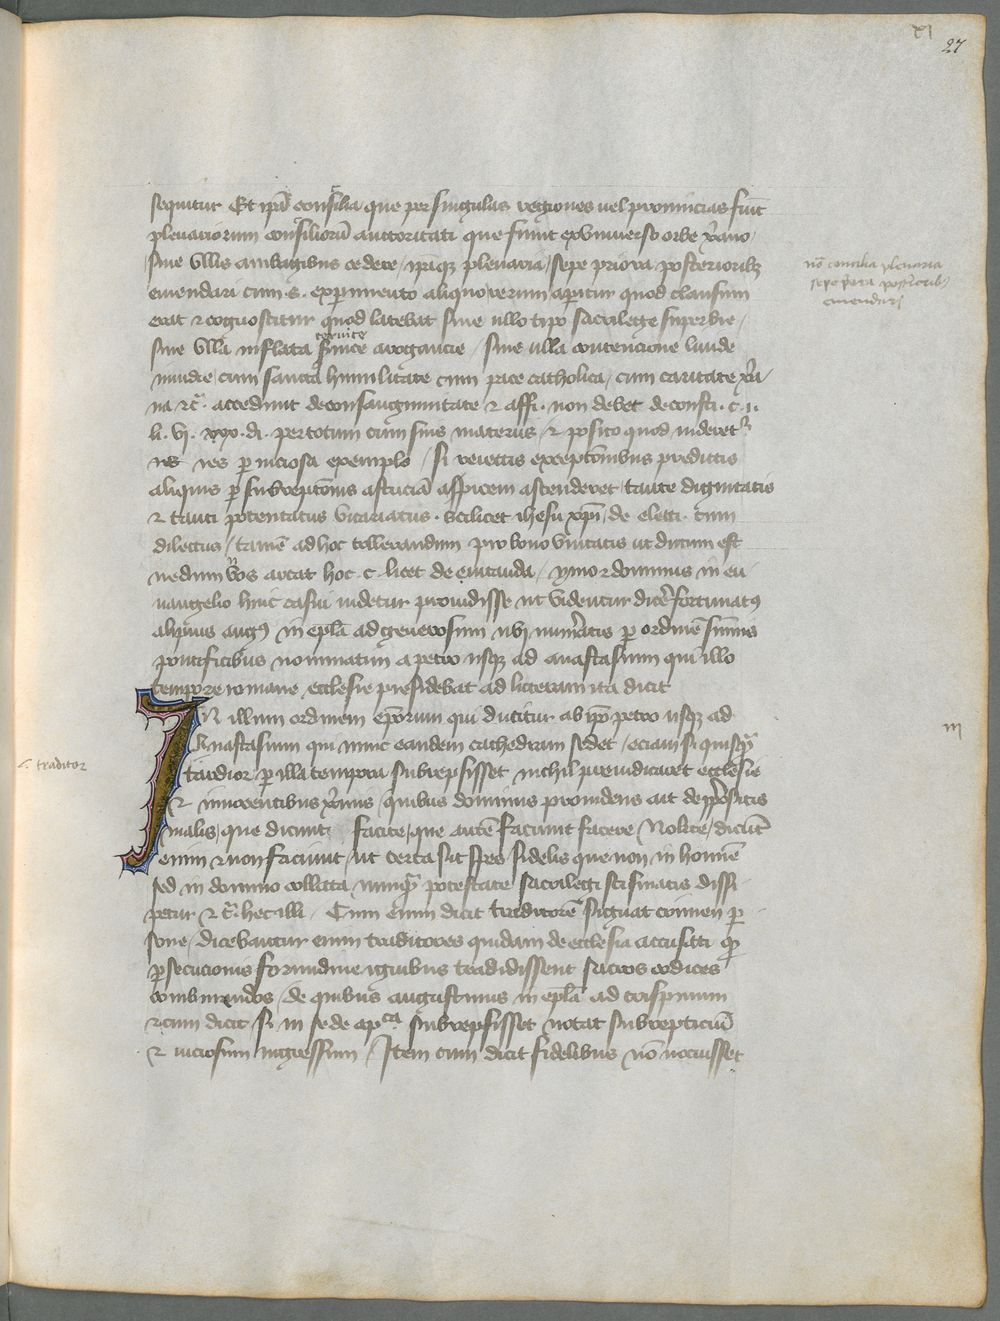 XI
27
sequitur Et ip̄a consilia que per singulas regiones uel prouincias fiūt
plenariorum consiliorū auctoritati que fiunt ex vniuerso orbe xp̄iano
sine vllis ambagibus cedere ip̄aqꝫ plenaria sepe priora posterioribꝫ
emendari cum .s. experimento aliquo rerum aperitur quod clausum
erat ⁊ cognoscitur quod latebat sine ullo tipo sacrilege superbie
sine vlla inflata ceruice arrogancie / sine ulla contencione liuide
inuidie cum sancta humilitate cum pace catholica / cum caritate xp̄ia
na ⁊c̄. accedunt de consanguinitate ⁊ affi. non debet de consti. c. ii.
li. vi. xxx. di. per totum cum suis materiis ⁊ posito quod inderet
res perniciosa exemplo / si reiectis exceptōnibus predictis
aliquis per subreptōnis astuciā ad apicem ascenderet tante dignitatis
⁊ tanti potentatus vicariatus. scilicet ihesu xp̄i / de elect. cum
dilectus / tamē ad hoc tollerandum pro bono vnitatis ut dictum est
nedum vos artat hoc. c. licet de euitanda / ymo ⁊ dominus in eu
uangelio huic casui uidetur prouidisse ut videntur dicere fortunatꝰ
alipius augꝰ in epl̄a ad generosum ubi numeratis per ordinē sūmis
pontificibus nominatim a petro usqꝫ ad anastasium qui illo
tempore romane ecclesie presidebat ad litteram ita dicit
IN illum ordinem ep̄orum qui ducitur ab ip̄o petro usqꝫ ad
Anastasium qui nunc eandem cathedram sedet / eciam si quisqꝫ
traditor per illa tempora subrepsisset nichil preiudicaret ecclesie
⁊ innocentibus xp̄ianis quibus dominus prouidens ait de p̄positis
malis / que dicunt facite / que autē faciunt facere nolite / dicūt
enim ⁊ non faciunt / ut certa sit spes fidelis que non in homīe
sed in domino collata nunqꝫ potestate sacrilegi scismatis dissi
petur ⁊ c̄. hec illi / Cum enim dicit traditorē signat crimen per
sone / dicebantur enim traditores quidam de ecclesia accusati qꝫ
persecucionis formidine ignibus tradidissent sacros codices
comburendos / de quibus augustinus in epl̄a ad crispinum
⁊ cum dicit si in sede ap̄ca subrepsisset notat subrepticiū
⁊ uiciosum ingressum / Item cum dicit fidelibus nō nocuisset
nō concilia plenaria
sepe p̄ora posterioribꝫ
emendari
.s. traditor
m